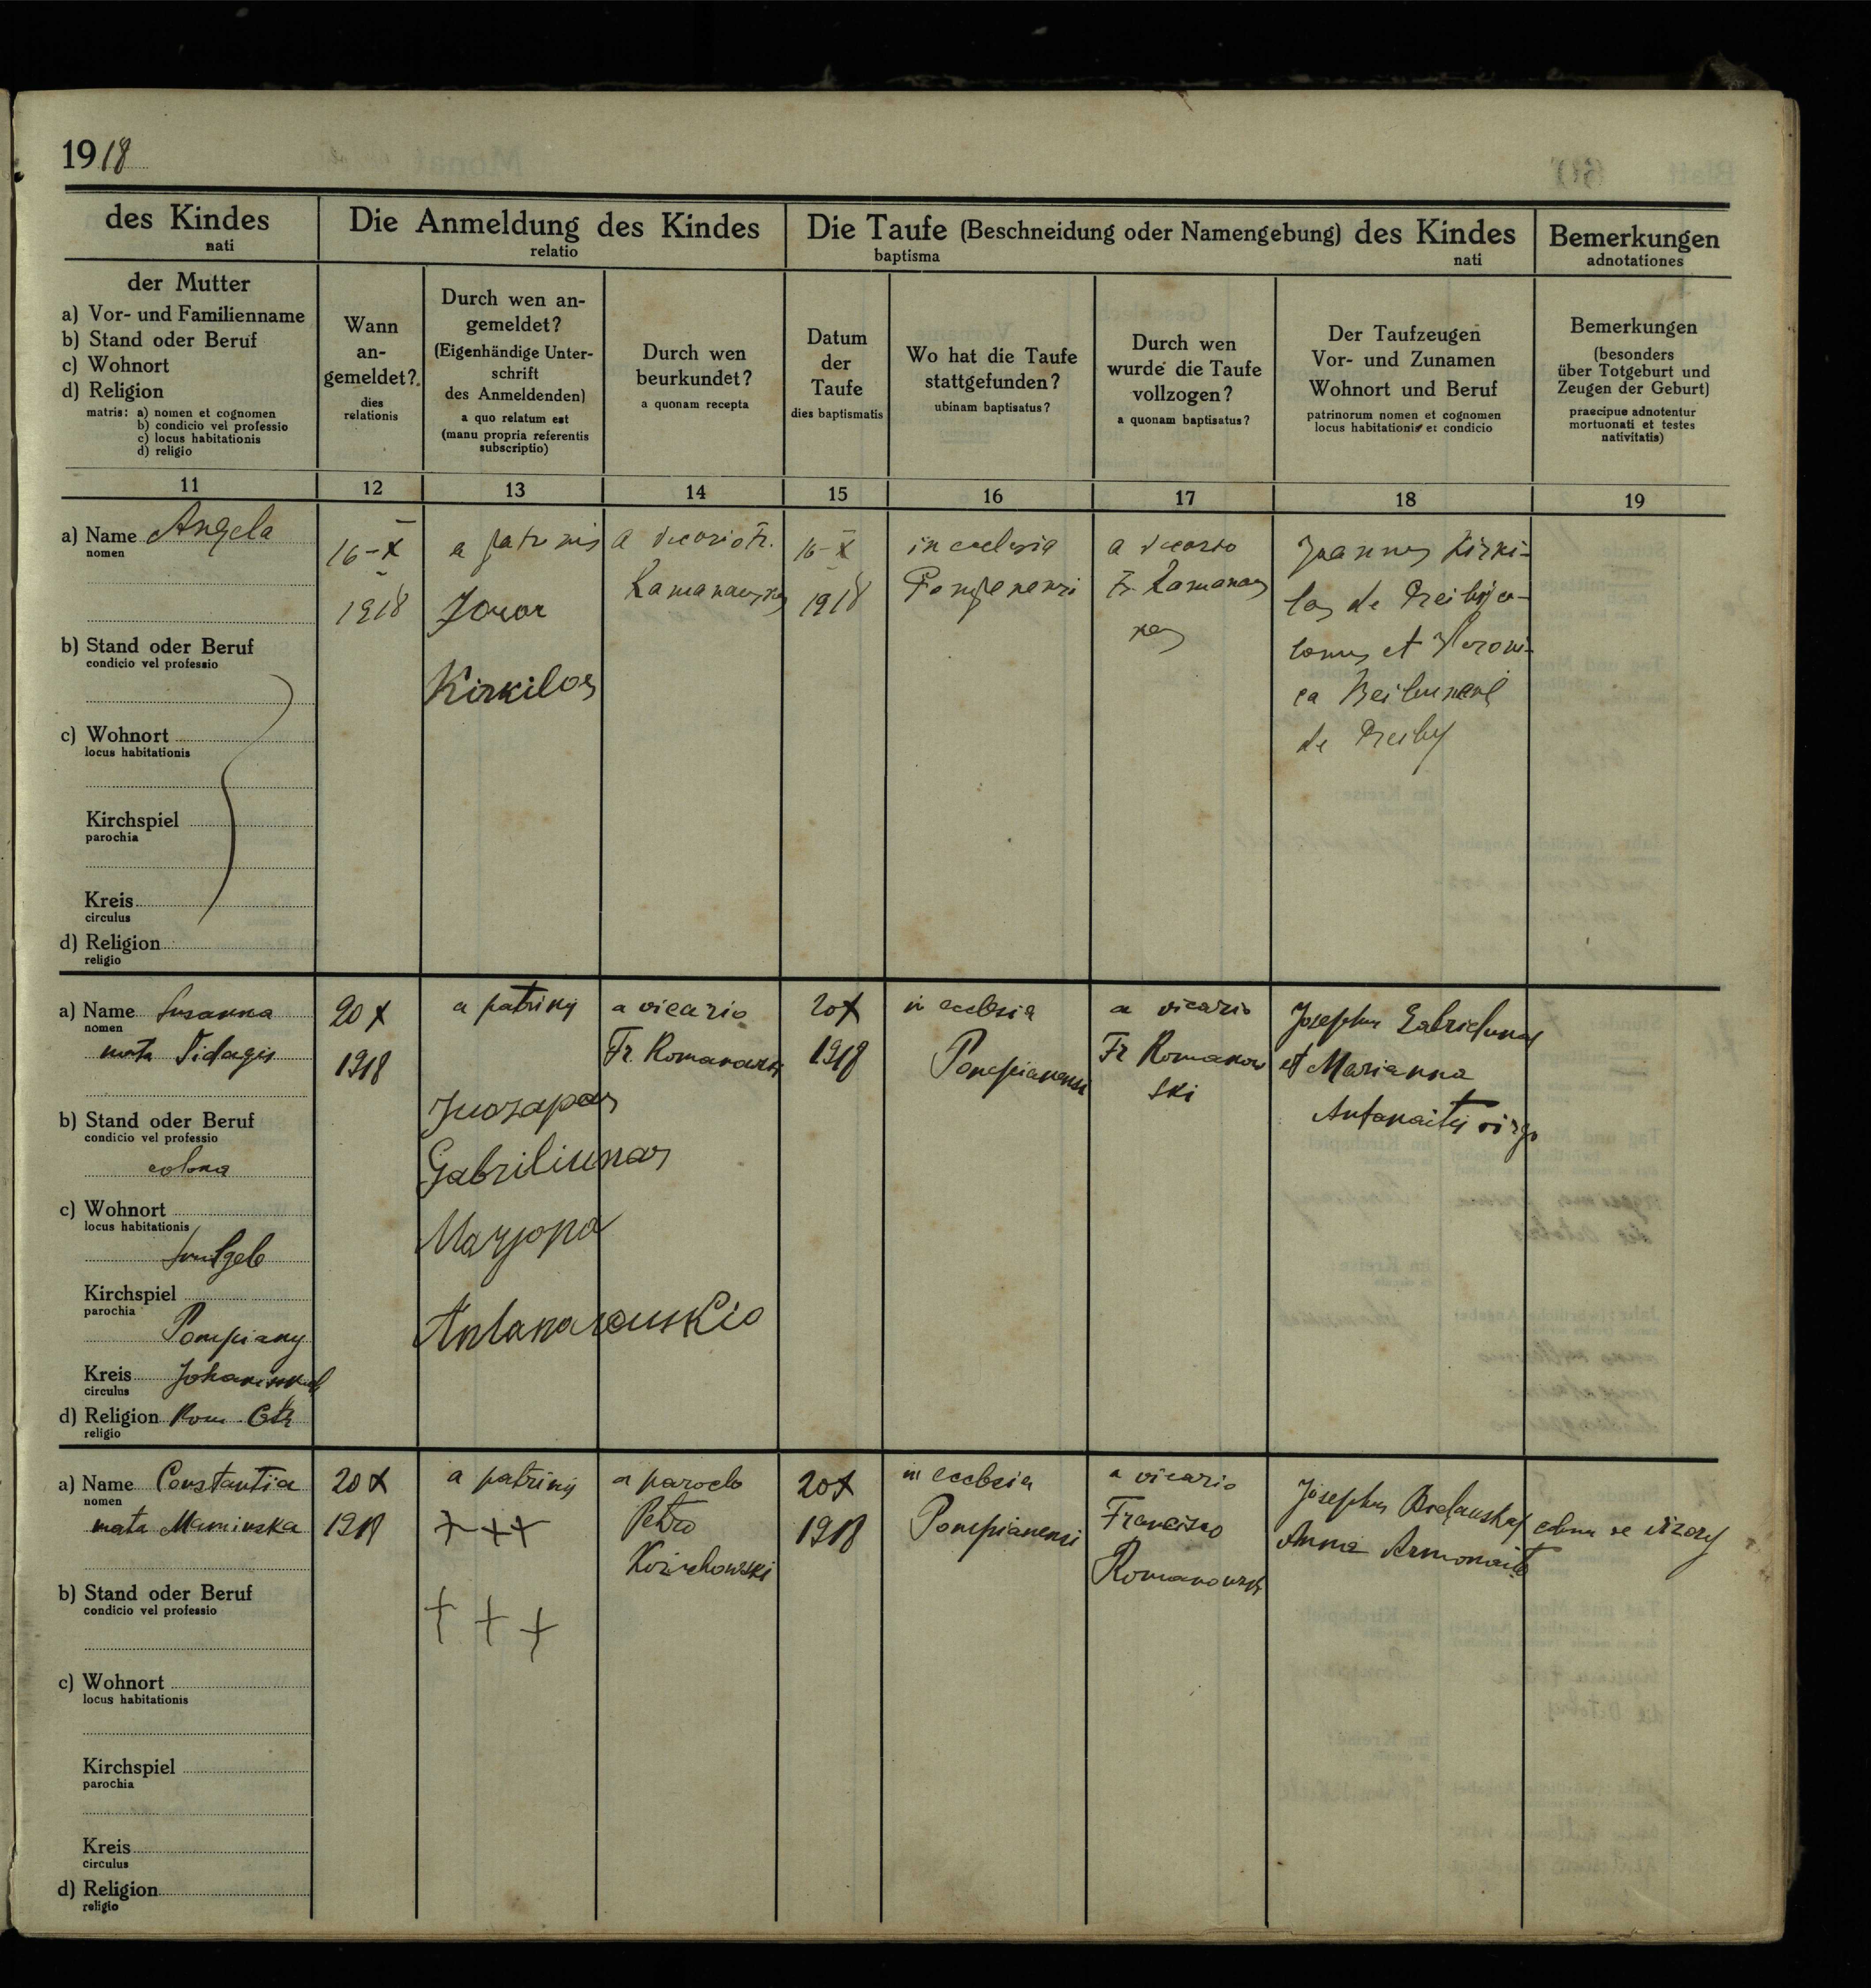 1918
des Kindes
nati
Die Anmeldung des Kindes
relatio
Die Taufe (Beschneidung oder Namengebung) des Kindes
baptisma nati
Bemerkungen
adnotationes
der Mutter
a) Vor- und Familienname
b) Stand oder Beruf
c) Wohnort
d) Religion
matris: a) nomen et cognomen
b) condicio vel professio
c) locus habitationis
d) religio
Wann
an-
gemeldet?
dies
relationis
Durch wen an-
gemeldet?
(Eigenhändige Unter-
schrift
des Anmeldenden)
a quo relatum est
(manu propria referentis
subscriptio)
Durch wen
beurkundet?
a quonam recepta
Datum
der
Taufe
dies baptismatis
Wo hat die Taufe
stattgefunden?
ubinam baptisatus?
Durch wen
wurde die Taufe
vollzogen?
a quonam baptisatus?
Der Taufzeugen
Vor- und Zunamen
Wohnort und Beruf
patrinorum nomen et cognomen
locus habitationis et condicio
Bemerkungen
(besonders
über Totgeburt und
Zeugen der Geburt)
praecipue adnotentur
mortuonati et testes
nativitatis)
11 12 13 14 15 16 17 18 19
a) Name Angela
nomen
b) Stand oder Beruf
condicio vel professio
c) Wohnort
locus habitationis
Kirchspiel
parochia
Kreis
circulus
d) Religion
religio
16-X
1918
a patrinis
Kirkilas
a vicario Fr.
Ramanauskas
16-X
1918
in ecclesia
a vicario
Fr. Ramanaus
kas
Joannes Kirki-
las de
et Veroni-
ca
de
a) Name Susanna
nomen
nata Vidugis
b) Stand oder Beruf
condicio vel professio
colona
c) Wohnort
locus habitationis
Kirchspiel
parochia
Pompiany
Kreis Johanischkeli
circulus
d) Religion Rom. Cth
religio
20 X
1918
a patrinis
Juozapas
Gabriliunas
Maryona
a vicario
Fr. Romanowski
20 X
1918
in ecclesia
Pompianensi
a vicario
Fr Romanow
ski
Josephus Gabrielunas
et Marianna
Antanaitis virgo
a) Name Constantia
nomen
nata Maminska
b) Stand oder Beruf
condicio vel professio
c) Wohnort
locus habitationis
Kirchspiel
parochia
Kreis
circulus
d) Religion
religio
20 X
1918
a patrinis
+ + +
+ + +
a parocho
Petro
20 X
1918
in ecclesia
Pompianensi
a vicario
Francisco
Romanowski
Josephus
Anna Armonaite